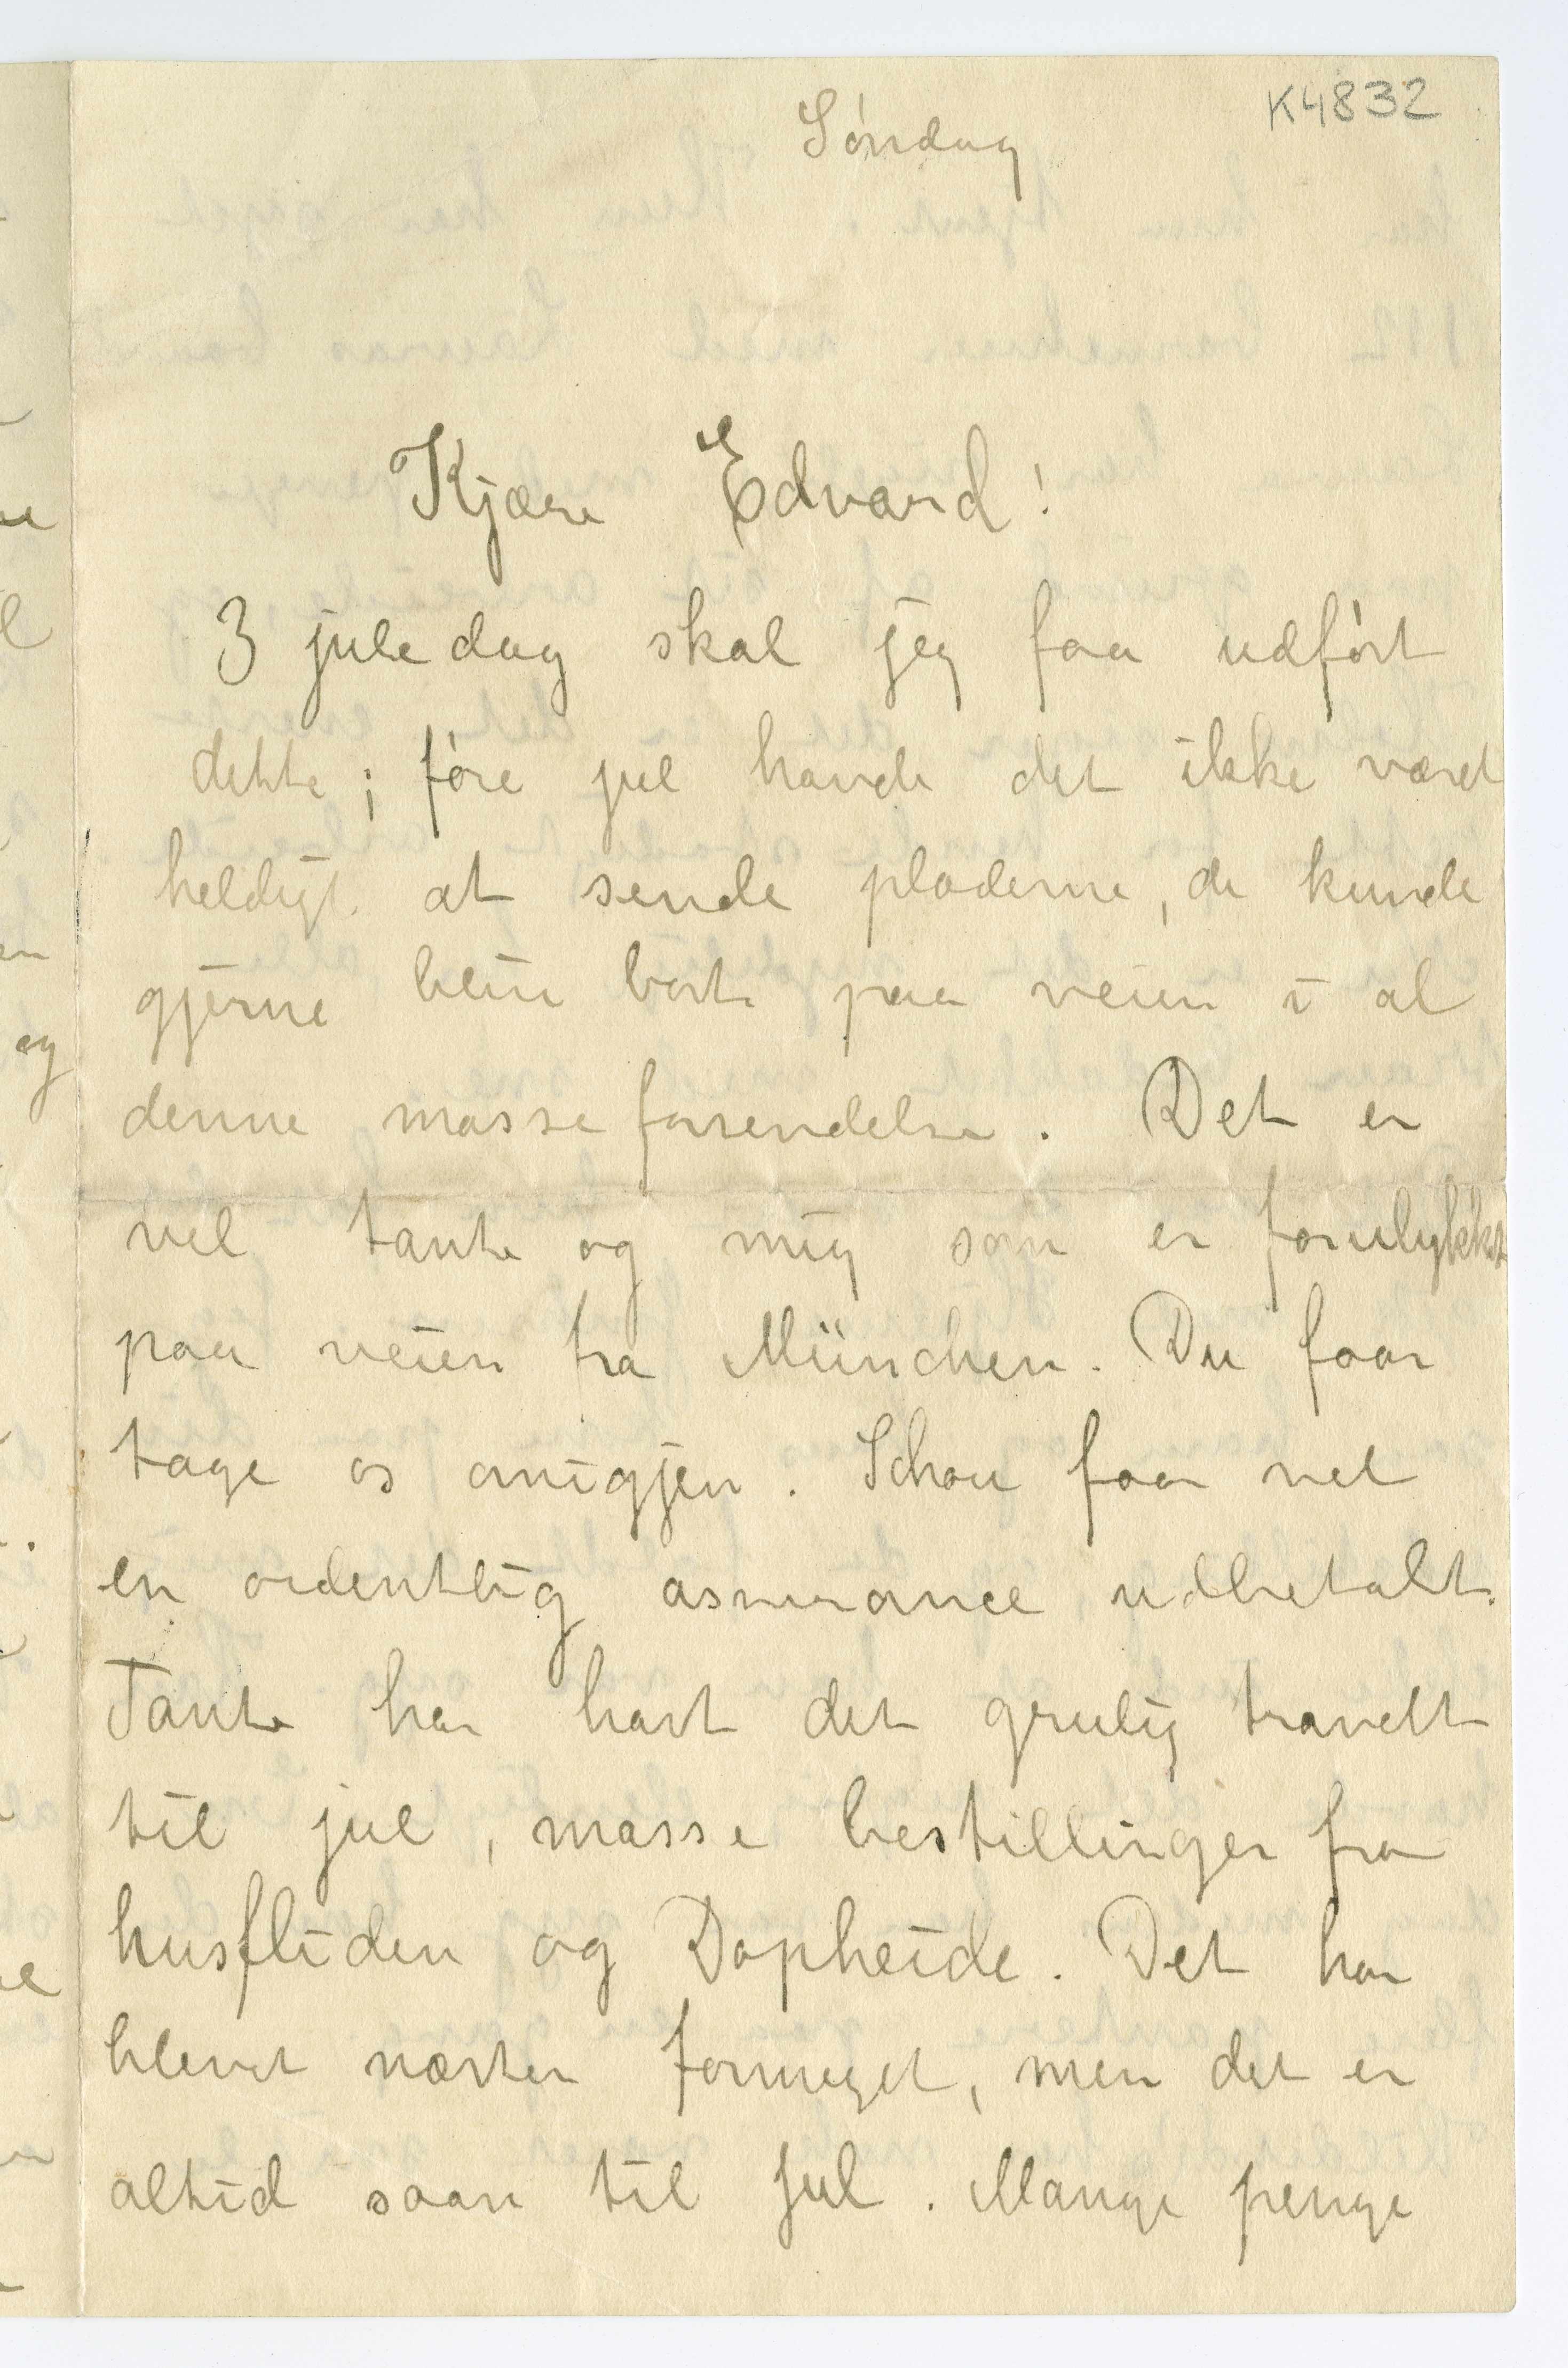 K4832
Søndag
Kjære Edvard!
3 juledag skal jeg faa udført
dette; føre jul havde det ikke været
heldigt at sende pladerne, de kunde
gjerne blive bort paa veien i al
denne masseforsendelse. Det er
vel tante og mig som er forulykket
paa veien fra München. Du faar
tage os omigjen. Schou faar vel
en ordentlig assurance udbetalt.
Tante har havt det grulig travelt
til jul, masse bestillinger fra
husfliden og Dopheide. Det har
blevet næsten formeget, men det er
altid saan til jul. Mange penge